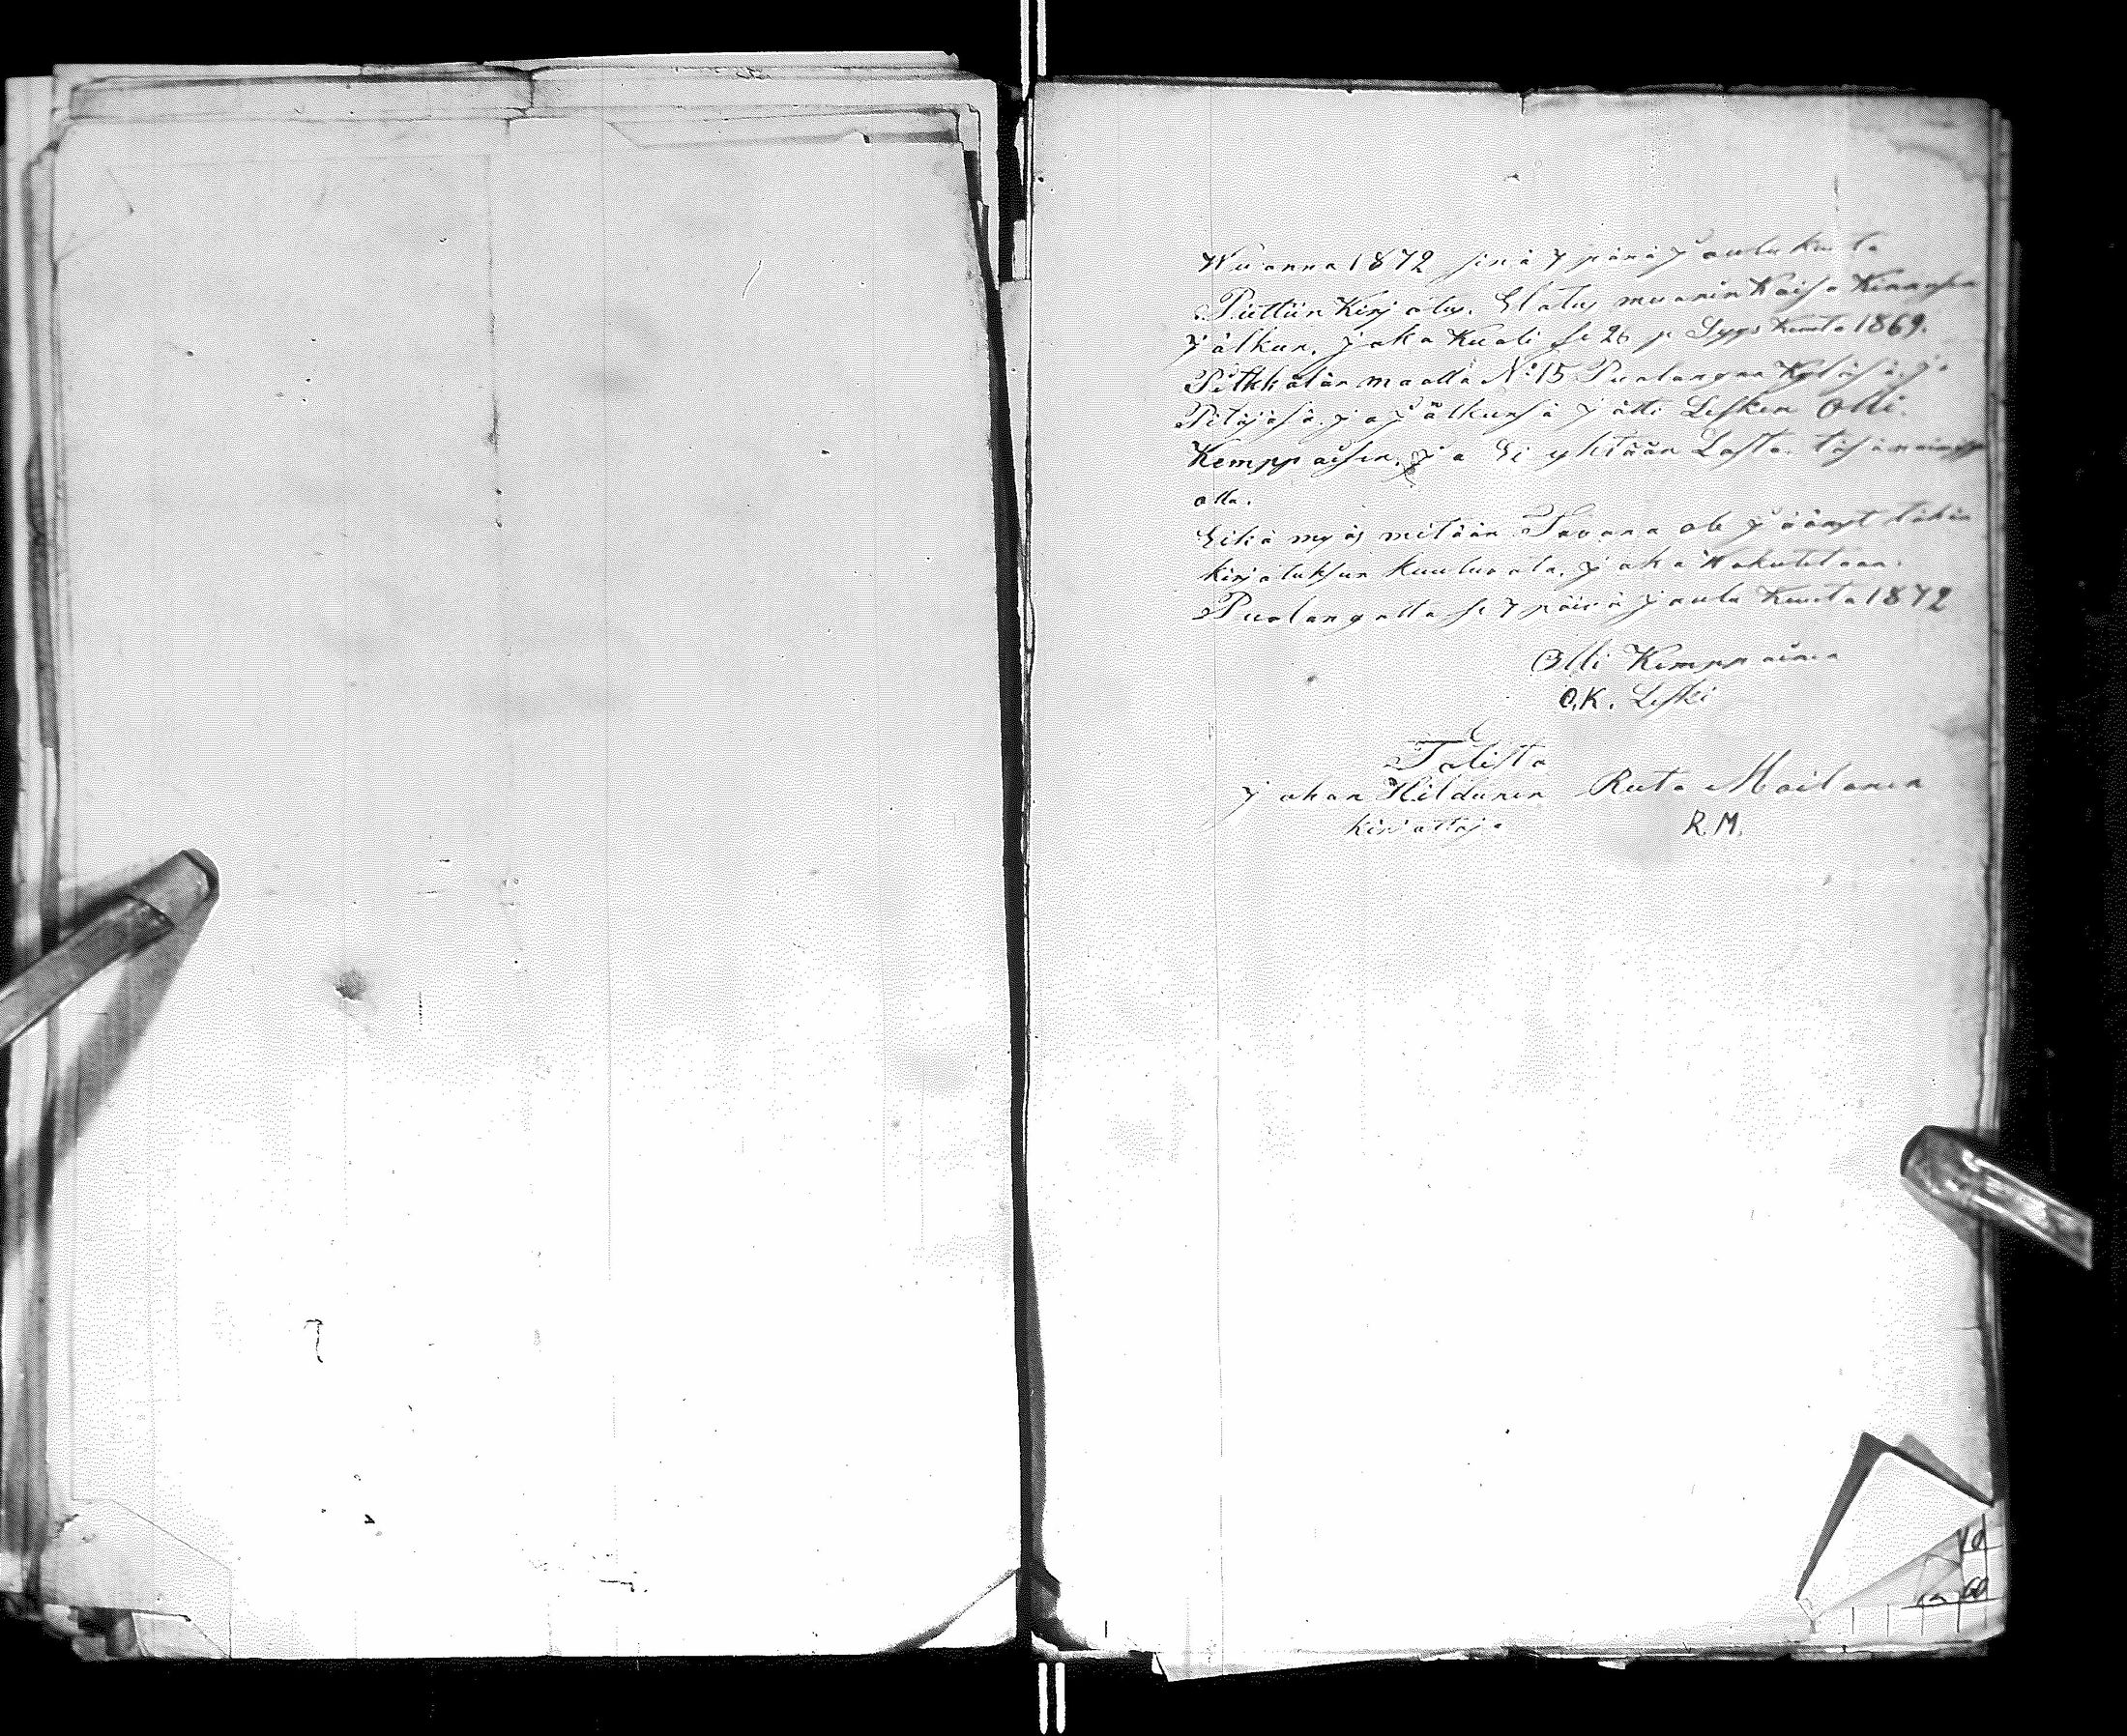 Wuonna 1872 sinä 7 päinä Joulu Kuuta
Piettiin Kirjotus. Elatus muorin Kaisa Kinnusen
Jälkun, joka Kuoli se 26 p Syys Kuuta 1869.
Pitkkälän maalla No 15 Puolangan Kyläsä, ja
Pitäjäsä. ja Jälkunsä jätti Lesken Olli
Kemppaisen, ja Ei yhtään Lasta.
olla.
Eikä myös mitään Tavara ole jäänyt tähän
kirjotuksen kuuluvata, joka Wakutetaan.
Puolangalla se 7 päivä Joulu Kuuta 1872
Olli Kemppainen
O.K. Leski
Tolista
Johan Hildunen Ruta Moilanen
kirjottaja R.M.
10
60